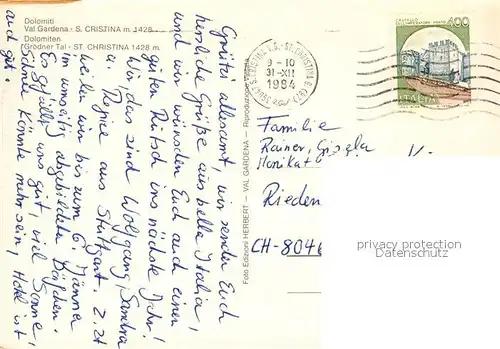 Dolomiti
Val Gardena - S. CRISTINA m. 1428
Dolomiten
Grödner Tal - ST. CHRISTINA 1428 m.
Grüß allesamt, wir senden Euch
herzliche Grüße aus bella Italia,
und wir wünschen Euch auch einen
guten Rutsch ins nächste Jahr!
Wir, das sind Wolfgang, Sandra
u. Regine aus Stuttgart. Z. Zt
weilen wir bis zum 6. Jänner
im umseitig abgebildeten Dörfchen.
Es gefällt uns gut, viel Sonne,
Schnee könnte mehr sein, Hotel ist
auch gut.
Foto Edizioni HERBERT - VAL GARDENA - Riproduzione
9-10
31-XII
1984
CASTELLO
400
ITALIA
Familie
Rainer, Gisela
Monika +
Rieden
CH-8046
privacy protection
Datenschutz